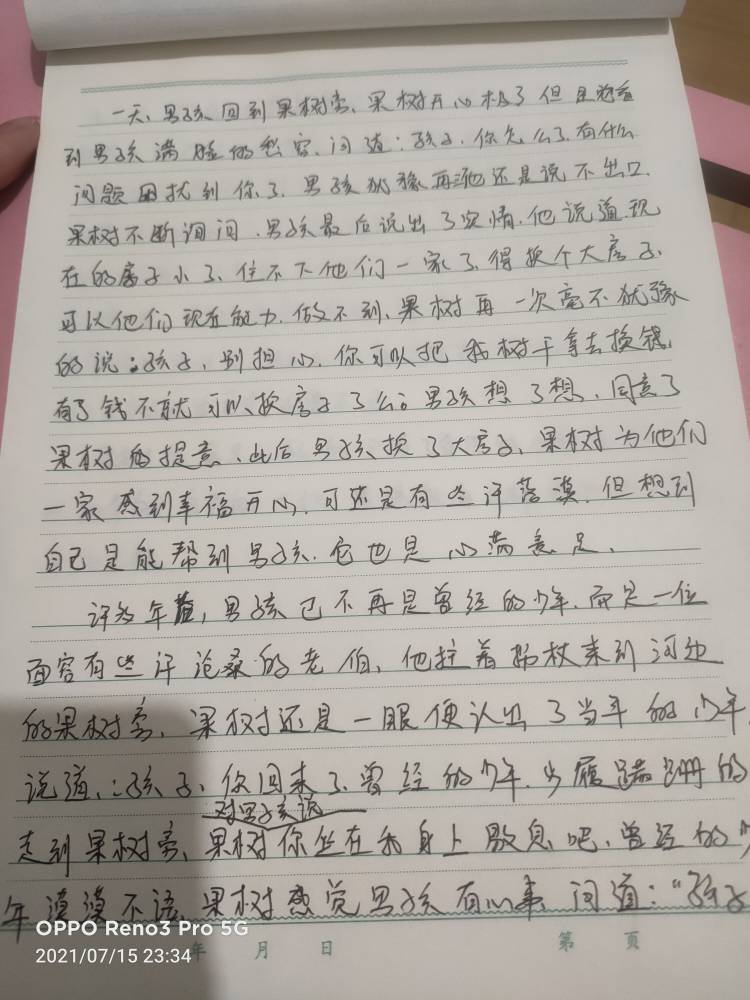 一天、男孩回到果树旁、果树开心极了但是看
到男孩满脸的愁容、问道:孩子、你怎么了、有什么
问题困扰到你了、男孩犹豫再三他还是说不出口
果树不断询问、男孩最后说出了实情、他说道、现
在的房子小了、住不下他们一家了、得换个大房子、
可以他们现在能力、做不到、果树再一次毫不犹豫
的说:孩子、别担心、你可以把我树干拿去换钱、
有了钱不就可以换房子了么。男孩想了想、同意了
果树的提意、此后男孩换了大房子、果树为他们
一家感到幸福开心、可还是有些许落漠、但想到
自己是能帮到男孩、它也是心满意足、
许多年后,男孩已不再是曾经的少年、而是一位
面容有些许沧桑的老伯、他拄着拐杖来到河边
的果树旁、果树还是一眼便认出了当年的少年、
说道、:孩子、你回来了、曾经的少年、步履蹒跚的
对男孩说
走到果树旁、果树你坐在我身上歇息吧、曾经的少
年漠漠不语、果树感觉男孩有心事、问道:“孩子
年 月 日 第 页
OPPO Reno3 Pro 5G
2021/07/15 23:34